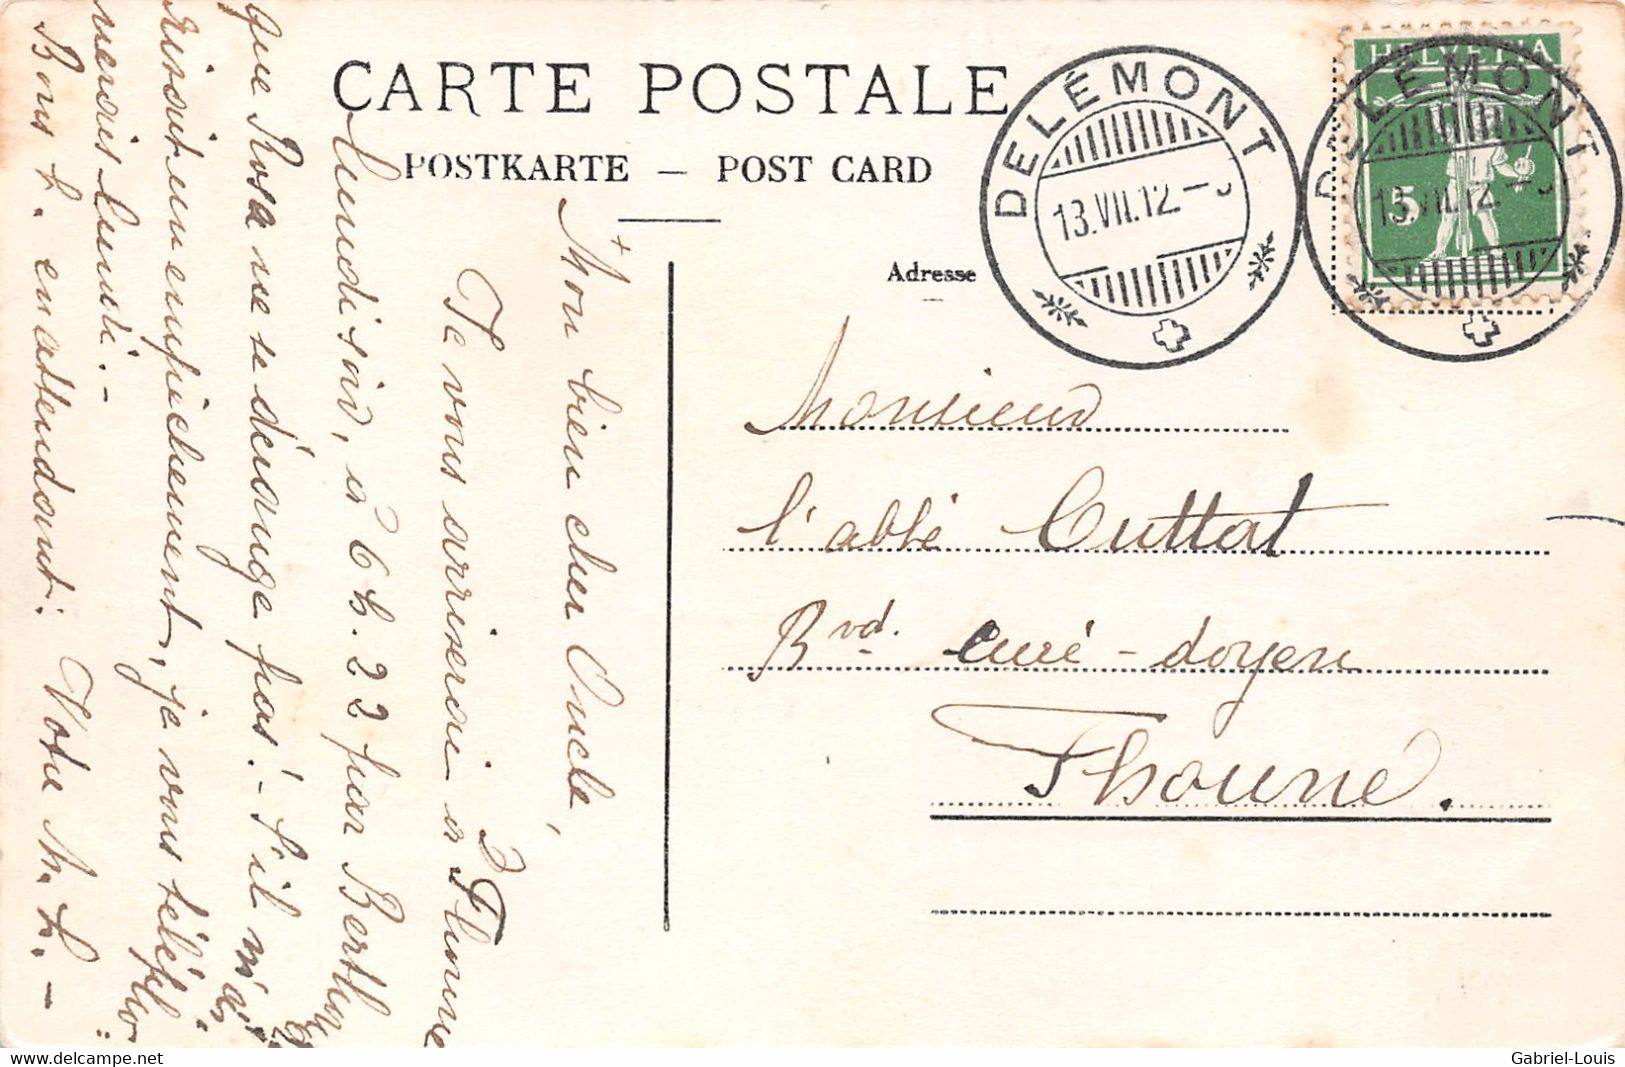 CARTE POSTALE
POSTKARTE — POST CARD
Adresse
DELÉMONT
13.VII.12.-
DELÉMONT
13.VII.12.-
HELVETIA
5
Monsieur
l'abbé Cuttat
Rvd. curé-doyen
Thoune.
+
Mon bien cher Oncle,
Je vous arriverai à Thoune
lundi soir, à 6 h. 22 par
que Rosa ne se dérange pas! - S'il
un empêchement, je vous télépho
nerais lundi. -
Bons en attendant. Votre M. L. -
Gabriel-Louis